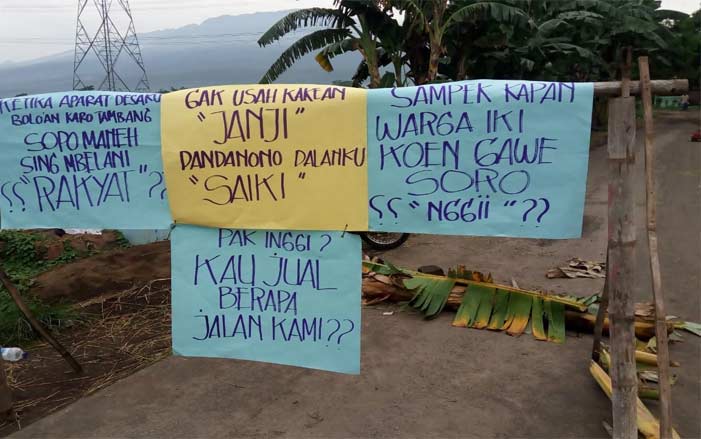 KETIKA APARAT DESAKU
BOLO'AN KARO TAMBANG
SOPO MANEH
SING MBELANI
?? "RAKYAT" ??
GAK USAH KAKEAN
"JANJI"
DANDANONO DALANKU
"SAIKI"
SAMPEK KAPAN
WARGA IKI
KOEN GAWE
SORO
?? "NGGII" ??
PAK INGGI?
KAU JUAL
BERAPA
JALAN KAMI??